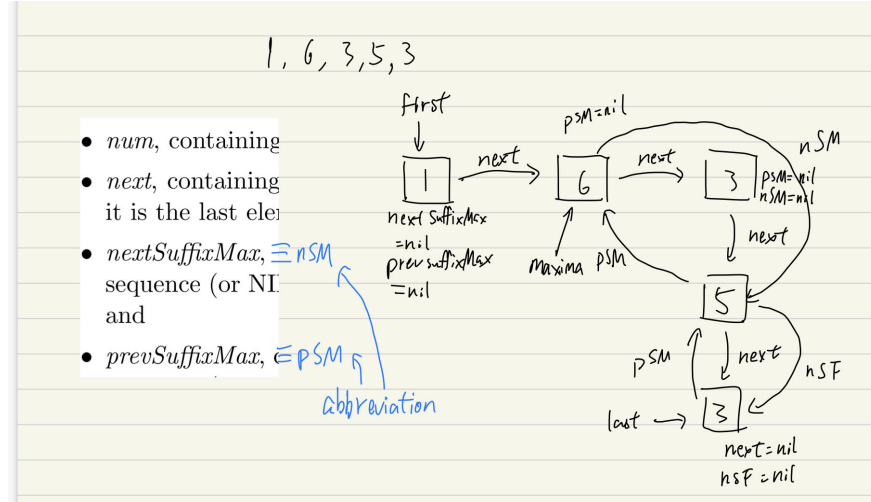 1, 6, 3, 5, 3
• num, containing
• next, containing
it is the last eler
• nextSuffixMax, ≡ nSM
sequence (or NI
and
• prevSuffixMax, ≡ pSM
abbreviation
first
1
next
next SuffixMax
=nil
prevsuffixMax
=nil
psM=nil
6
next
maxima
pSM
nSM
3
psM=nil
nSM=nil
next
5
pSM
next
nSF
last
3
next=nil
nsF=nil